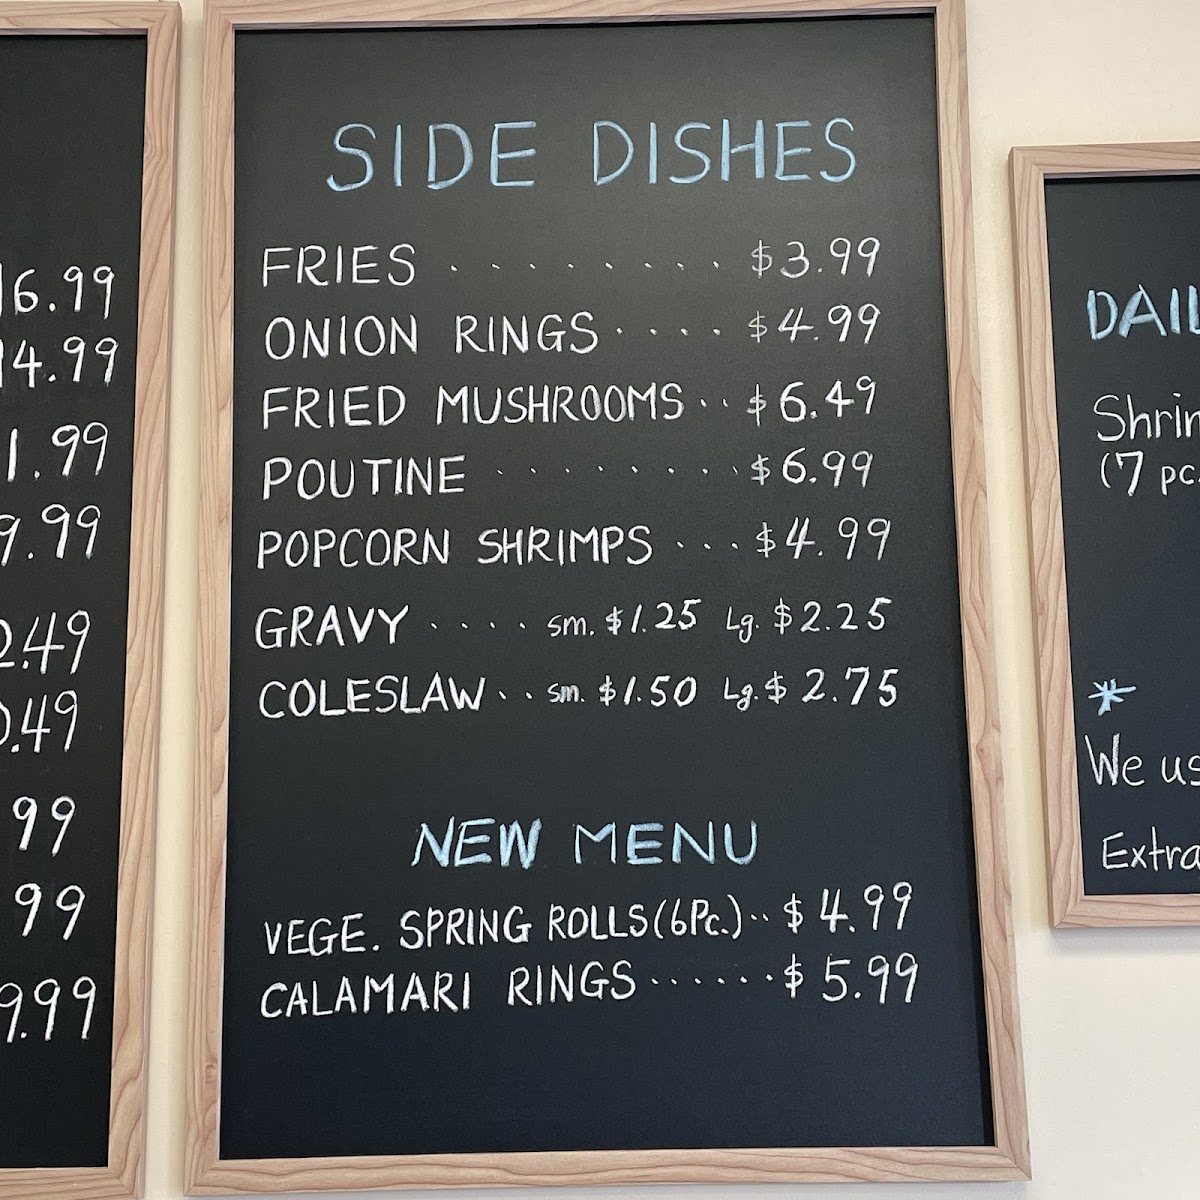 16.99
14.99
1.99
9.99
2.49
0.49
99
99
9.99
SIDE DISHES
FRIES . . . . . . . . . $3.99
ONION RINGS . . . . $4.99
FRIED MUSHROOMS . . $6.49
POUTINE . . . . . . . . . $6.99
POPCORN SHRIMPS . . . $4.99
GRAVY . . . . sm. $1.25 Lg. $2.25
COLESLAW . . sm. $1.50 Lg. $2.75
NEW MENU
VEGE. SPRING ROLLS (6Pc.) . . $4.99
CALAMARI RINGS . . . . . . $5.99
DAIL
Shrim
(7 pc.
*
We us
Extra